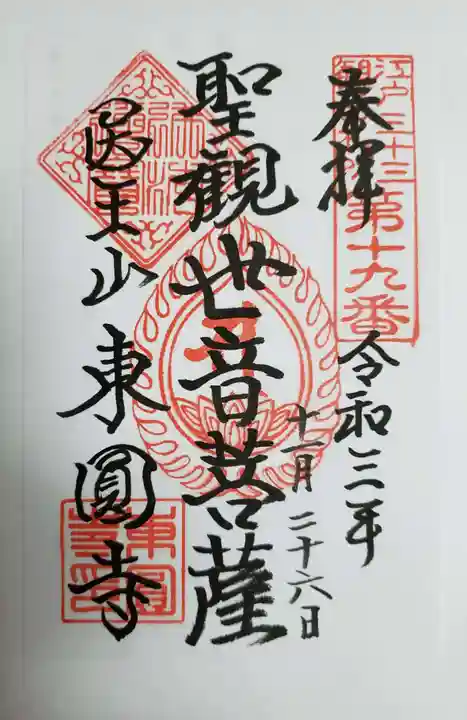 奉拝
江戸三十三
観音札所
第十九番
令和三年
十一月二十六日
聖觀世音菩薩
医王山
東圓寺
東圓
寺印